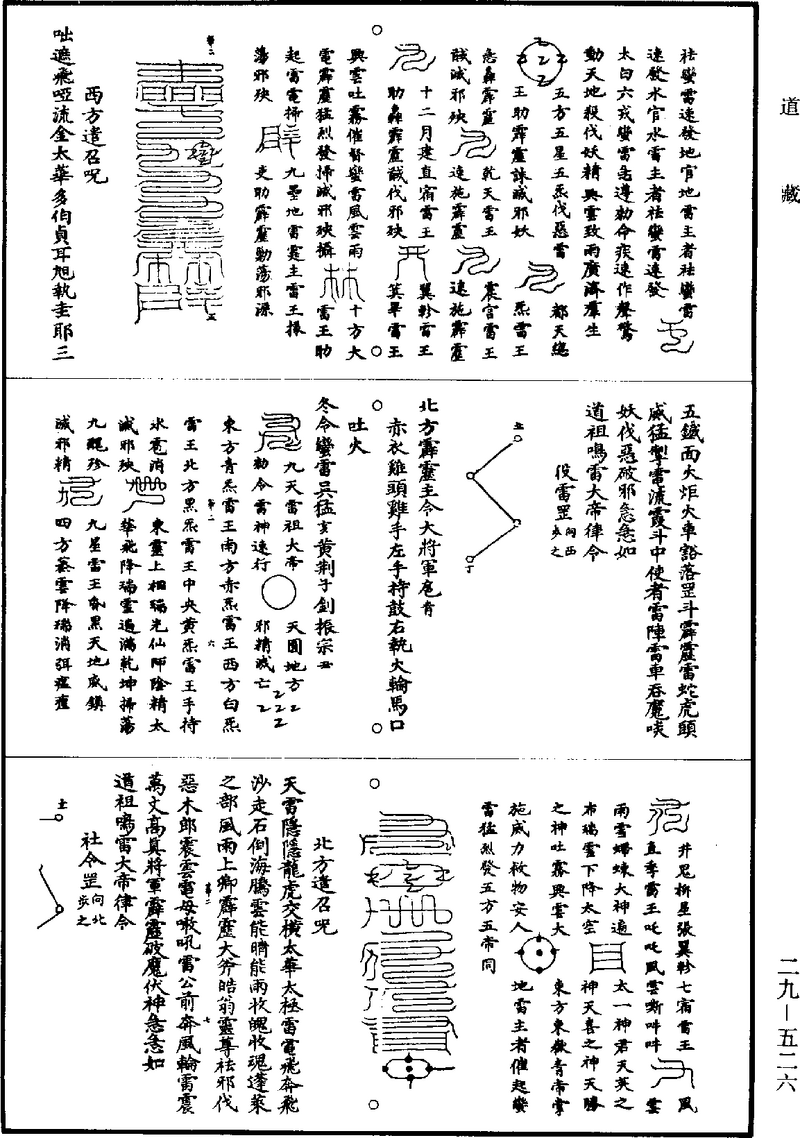 道藏
祛蠻雷速發地官地雷主者祛蠻雷
速發水官水雷主者祛蠻雷速發
太白六戎蠻雷急遵勑命疾速作聲驚
動天地殺伐妖精興雲致雨廣濟羣生
五方五星五炁伐惡雷 都天總
王助霹靂誅滅邪妖 炁雷王
急轟霹靂 乾天雷王 震宫雷王
馘滅邪殃 速施霹靂 速施霹靂
十二月建直宿雷王 翼軫雷王
助轟霹靂馘伐邪殃 箕畢雷王
興雲吐霧催督蠻雷風雲雨 十方大
電霹靂猛烈發掃滅邪殃攝 雷王助
起雷電掃 九壘地雷霆主雷王攝
蕩邪殃 吏助霹靂動蕩邪深
第二
五
西方遣召呪
咄遮飛啞流金太華多伯貞耳旭執圭耶三
五鐵面火炬火車豁落罡斗霹靂雷蛇虎頭
威猛掣雷流霞斗中使者雷陣雷車吞魔啖
妖伐惡破邪急急如
道祖鳴雷大帝律令
役雷罡向西步之
北方霹靂主令大將軍
赤衣雞頭雞手左手持鼓右執火輪馬口
吐火
冬令蠻雷吳猛亥黄荆子劍振宗丑
九天雷祖大帝 天圓地方
勑令雷神速行 邪精滅亡
東方青炁雷王南方赤炁雷王西方白炁
雷王北方黑炁雷王中央黄炁雷王手持
第二
六
水雹消 東靈上相瑞光仙師陰精太
滅邪殃 華飛降瑞雲遍滿乾坤掃蕩
九醜殄 九星雷王昏黑天地威鎮
滅邪精 四方蒸雲降瑞消弭瘟𤺋
井鬼柳星張翼軫七宿雷王 風
直季雷王吒吒風雲嘶吽吽 雲
雨雪蝃蝀大神遍 太一神君天英之
布瑞雲下降太空 神天喜之神天勝
之神吐霧興雲大 東方東嶽青帝掌
施威力救物安人 地雷主者催起蠻
雷猛烈發五方五帝同
北方遣召呪
天雷隱隱龍虎交横太華太極雷電飛奔飛
沙走石倒海騰雲能晴能雨收魄收魂蓬萊
之部風雨上卿霹靂大斧皓翁靈尊祛邪伐
惡木郎震雲電母嗷吼雷公前奔風輪雷震
第二
七
萬丈高真將軍霹靂破魔伏神急急如
道祖鳴雷大帝律令
社令罡向北步之
二九—五二六